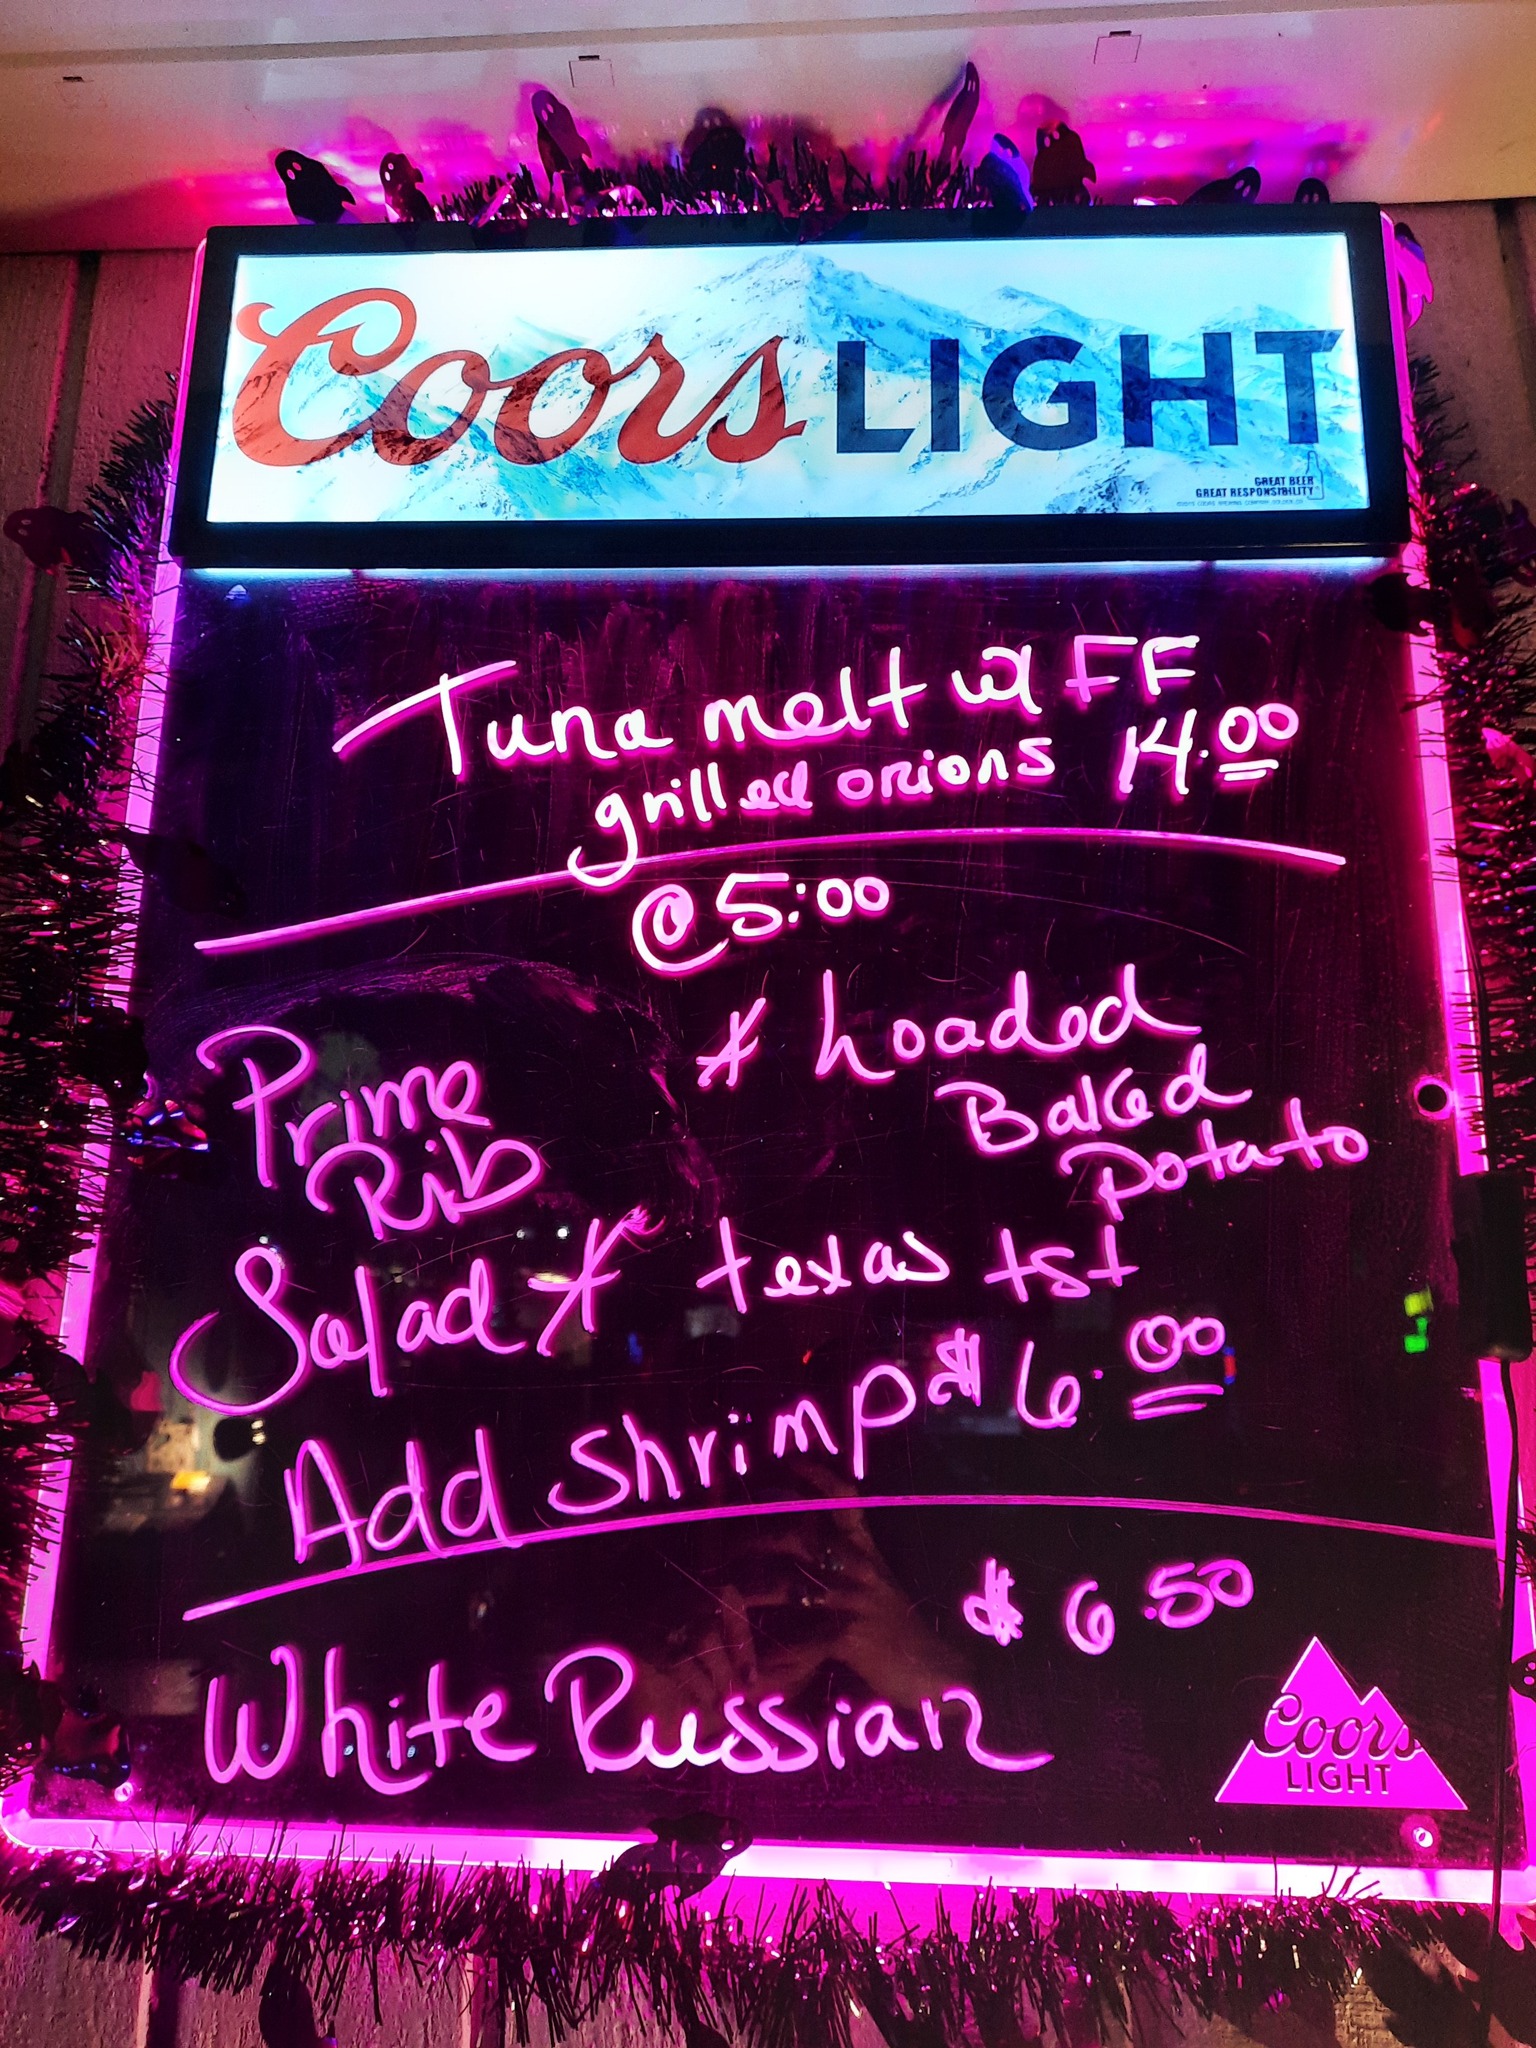 Coors LIGHT
GREAT BEER
GREAT RESPONSIBILITY
Tuna melt w/ FF
grilled onions 14.00
@ 5:00
Prime * Loaded
Rib Baked
Potato
Salad * texas tst
Add shrimp $6.00
$6.50
White Russian
Coors
LIGHT